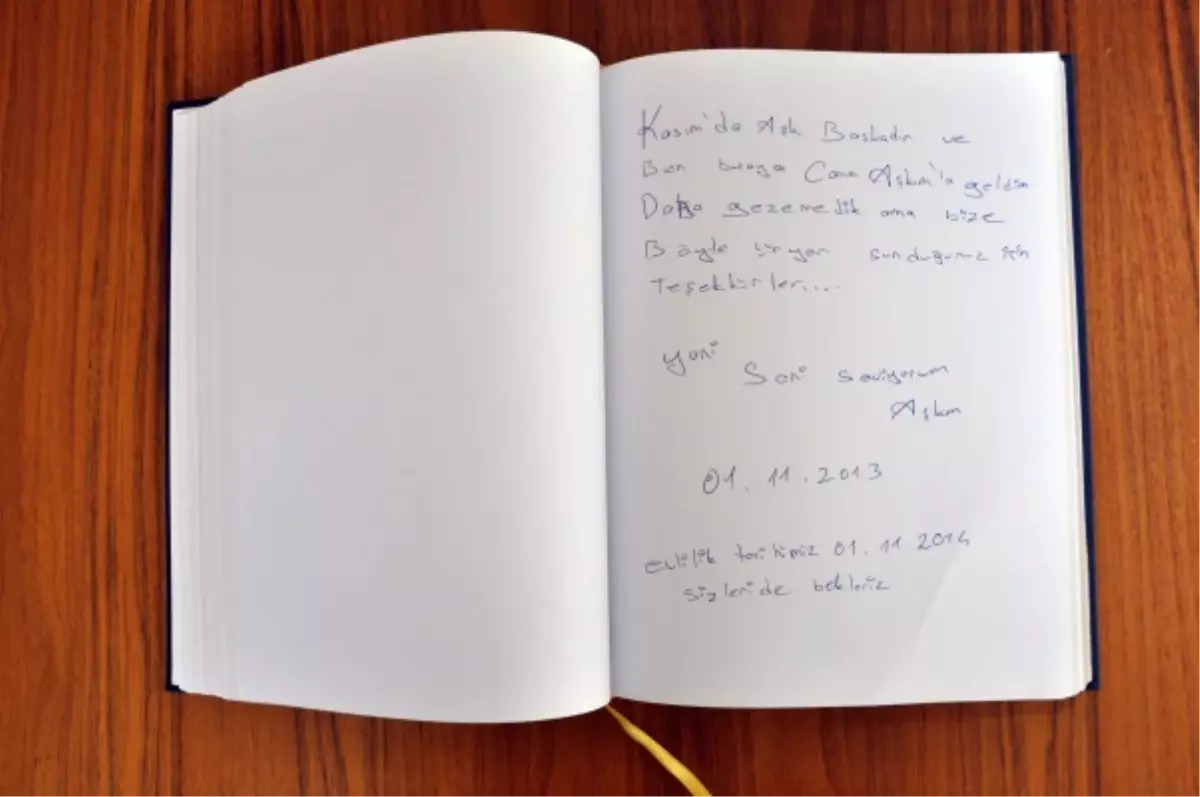 Kasım'da Aşk Başkadır ve
Ben buraya Canım Aşkım'la geldim
Daha gezemedik ama bize
Böyle bir yer sunduğunuz için
Teşekkürler....
yani
Seni seviyorum
Aşkım
01.11.2013
evlilik tarihimiz 01.11 2014
sizleride bekleriz